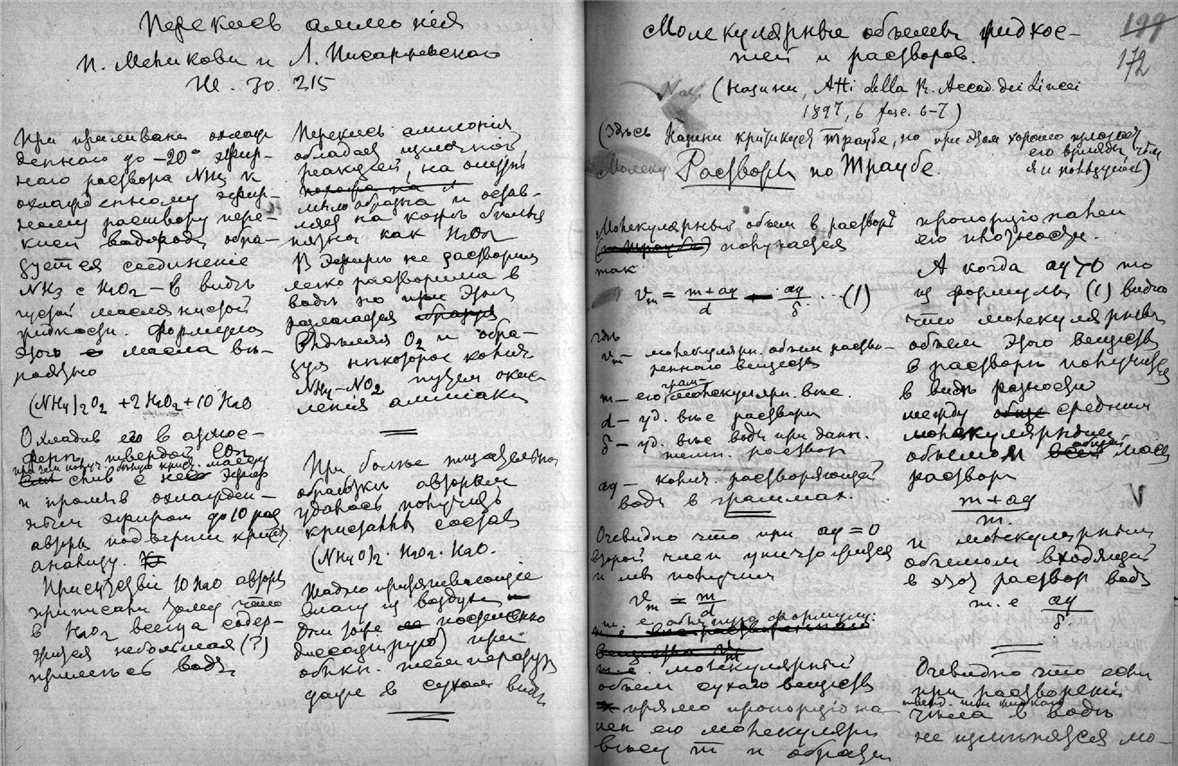 Перекись аммонія
П. Меликови и Л. Писаржевскаго
Ж. 30. 215
При приливаніи охлаж
деннаго до −20° эфир-
наго раствора NH3 к
охлажденному эфир-
ному раствору пере-
киси водорода обра-
зуется соединеніе
NH3 с H2O2 — в видѣ
густой маслянистой
жидкости. Формула
этого масла вы-
ражена
(NH4)2O2 + 2H2O2 + 10 H2O
Охладив его в атмос-
ферѣ твердой CO2
при чем получ.
смыв с него эфир
и промыв охлажден-
ным эфиром до 10 раз
авторы подвергли крист.
анализу.
Присутствіе 10 H2O авторы
приписали тому что
в H2O2 всегда содер-
жится небольшая (?)
примесь воды
Перекись аммонія
обладая щелочной
реакціей, на ощупь
мылообразна и остав-
ляя на кожѣ бѣлыя
пятна как H2O2
В эфирѣ не растворима
легко растворима в
водѣ но при этом
разлагается
выдѣляя O2 и обра-
зуя нѣкоторое колич
NH4-NO2 путем окис-
ленія амміака
При болѣе тщательной
обработкѣ авторам
удалось получить
кристаллы состава
(NH4O)2 · H2O2 · H2O.
Жадно притягивающіе
влагу из воздуха
постепенно
диссоціируют при
обыкн. температурѣ
даже в сухом видѣ
199
172
Молекулярные объемы жидкос-
тей и растворов.
(Назини, Atti della R. Accad. dei Lincei
1897, 6 fasc. 6-7)
(Здѣсь Назини критикуя Траубе, но при этом хорошо излагает
его взгляды, чѣм
я и пользуюсь)
Молеку Растворы по Траубе.
Молекулярный объем в растворѣ
(по Траубе) получается
так
vm = m + aq / d − aq / δ ... (1)
гдѣ
vm — молекулярн. объем раство-
реннаго вещества
грам
m — его молекулярн. вѣс.
d — уд. вѣс раствора
δ — уд. вѣс воды при данн.
темп. раствор
aq — колич. растворяющей
воды в граммах.
Очевидно что при aq = 0
второй член уничтожится
и мы получим
vm = m / d
т. е обычную формулу.
т.е. молекулярный
объем сухаго вещества
прямо пропорціона
лен его молекулярн
вѣсу m и обратно
пропорціонален
его плотности.
А когда aq > 0 то
из формулы (1) видно
что молекулярный
объем этого вещества
в растворѣ получится
в видѣ разности
между общи средним
молекулярным
общей
объемом всей массы
раствора
m + aq / m.
и молекулярным
объемом входящей
в этот раствор воды
т. е aq / δ.
V
Очевидно что если
при раствореніи
твердаго или жидкаго
тѣла в водѣ
не измѣняется мо-